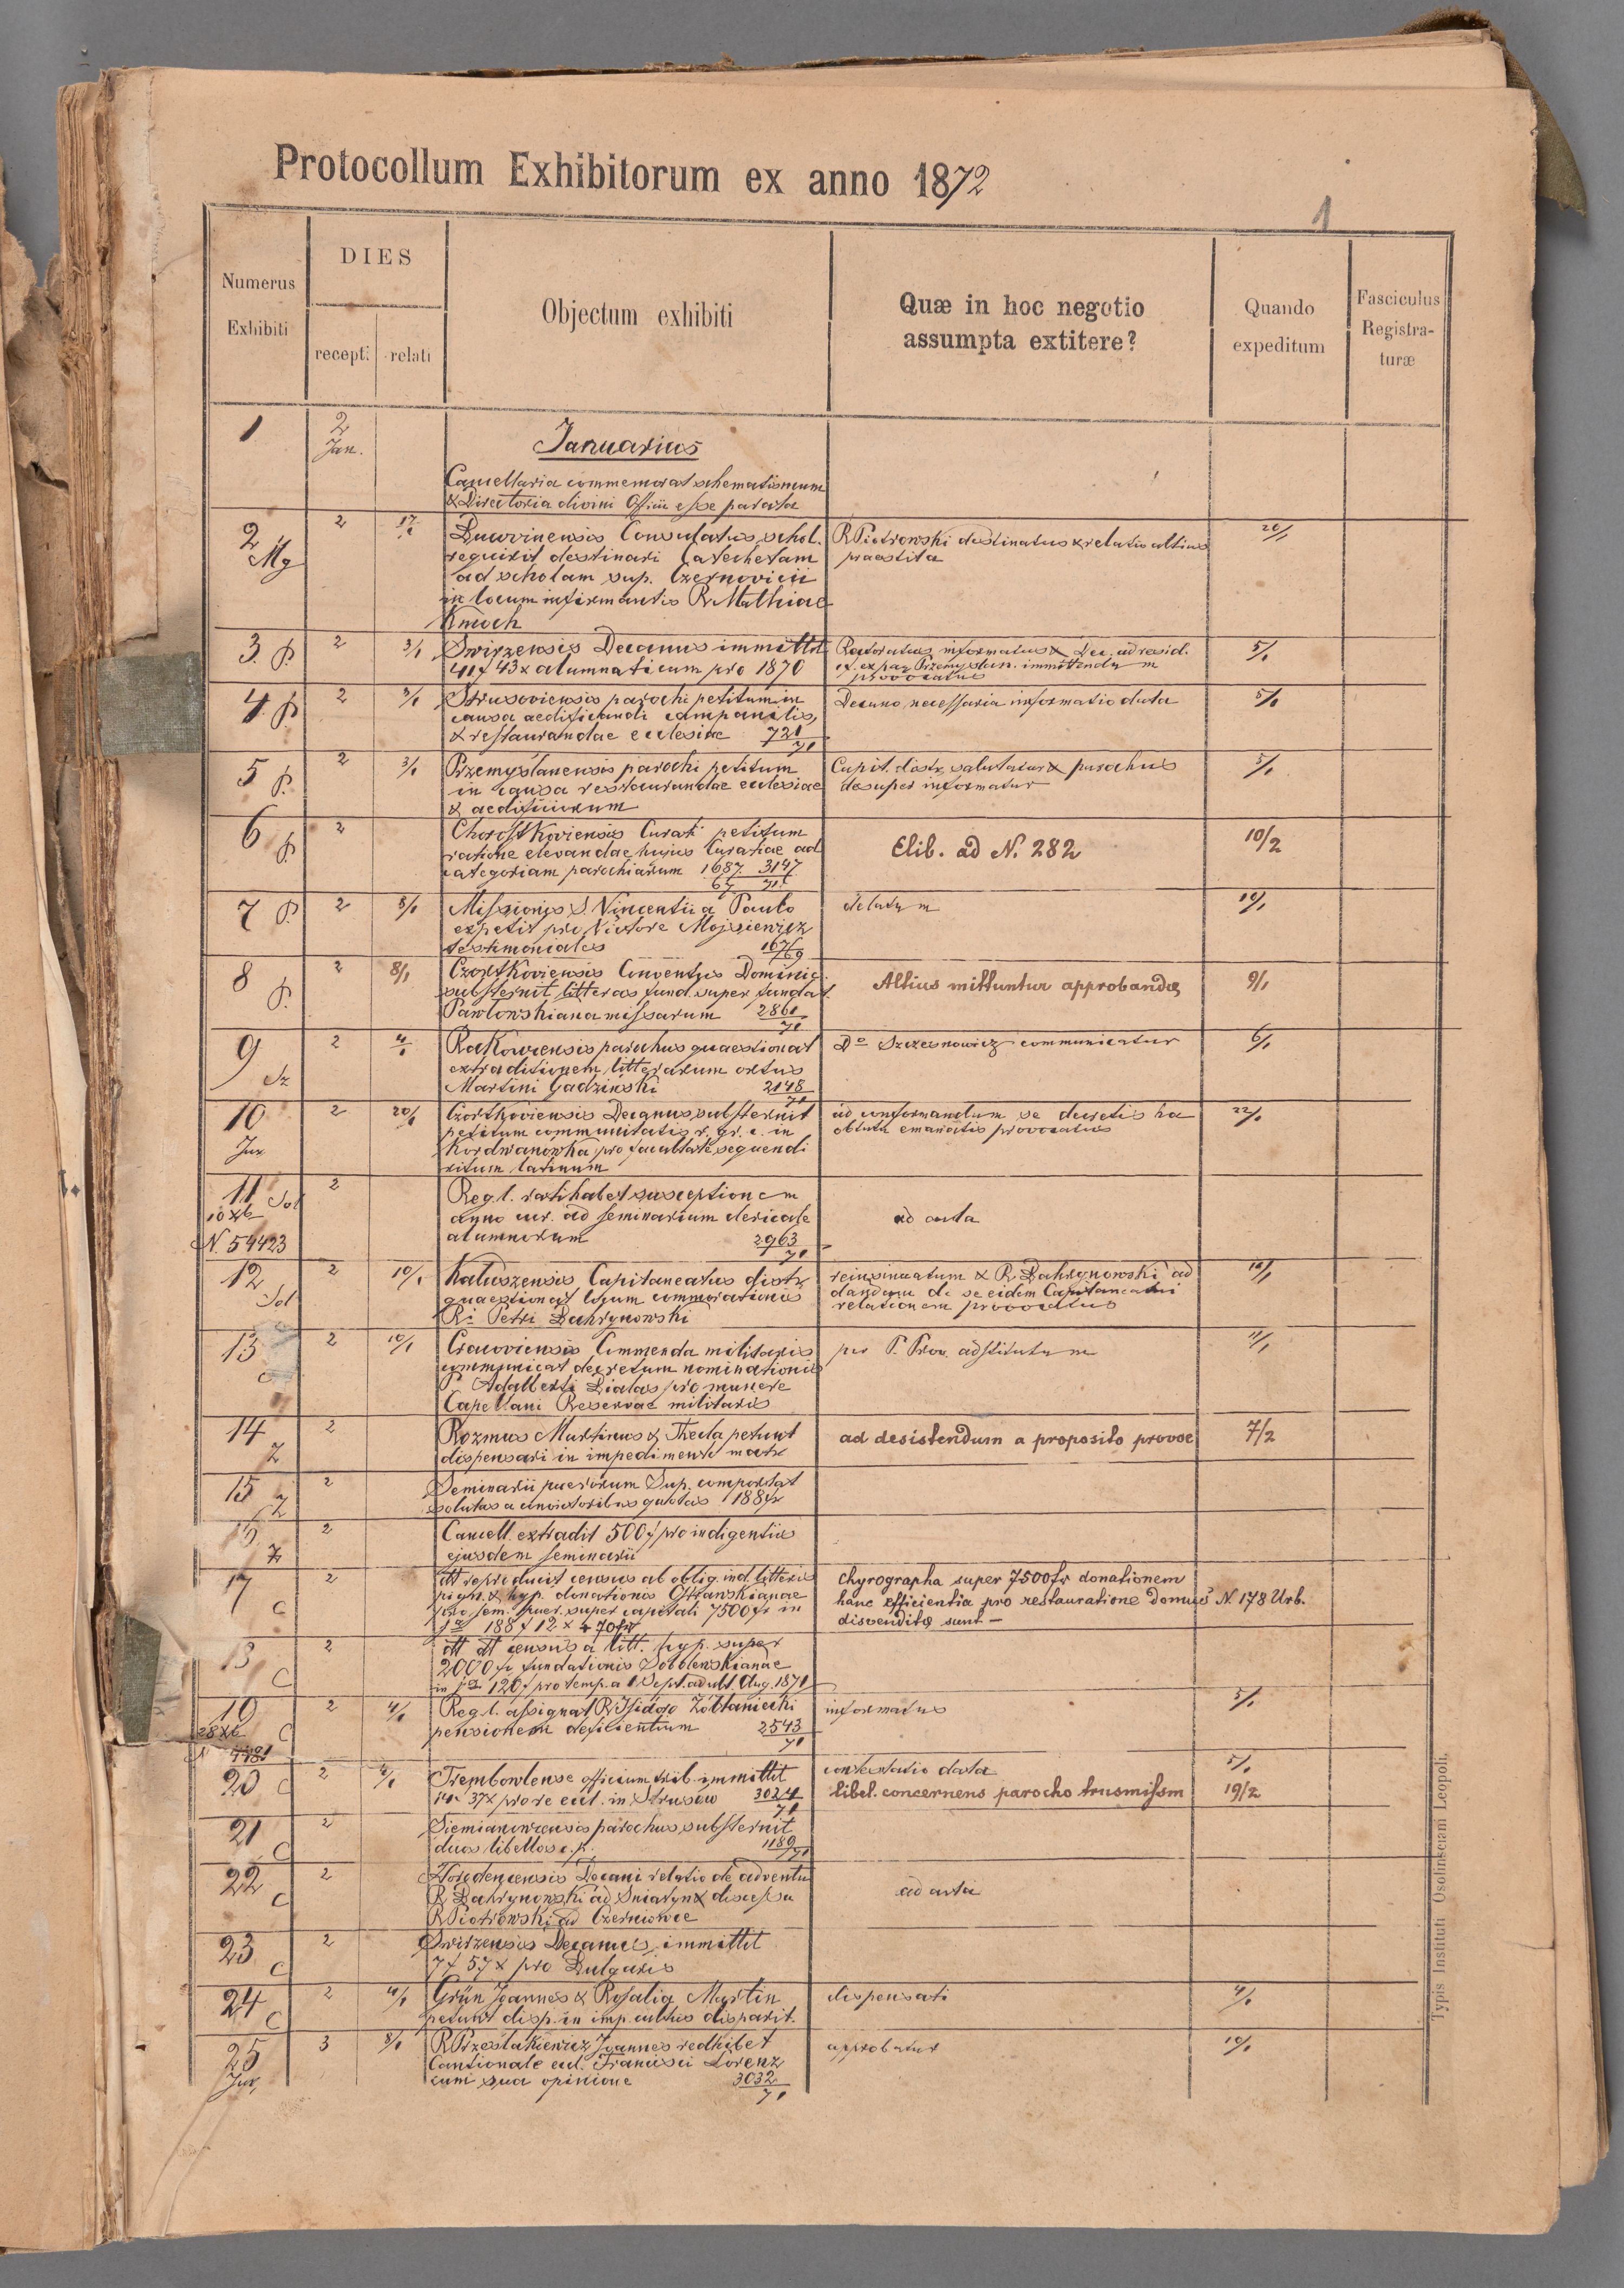 Protocollum Exhibitorum ex anno 1872
1
Numerus Exhibiti
DIES
recepti
relati
Objectum exhibiti
Quæ in hoc negotio assumpta extitere?
Quando expeditum
Fasciculus Registraturæ
1
2 Jan.
Januarius
Cancellaria commemorat schematismum
& Directoria divini Officii esse parata
2 Mg
2
17/1
Bucovinensis Consulatus schol.
requirit destinari Catechetam
ad scholam sup. Czernovicii
in locum infirmantis R. Mathiae
Kmoch
R Piotrowski destinatus & relatio altius
praestita
20/1
3 P.
2
3/1
Swirzensis Decanus immittit
41 f 43 x alumnaticum pro 1870
Rectoratus informatus & Dec. ad resid.
ex par. Przemyslan. immittendum
provocatus
5/1
4 P
2
3/1
Strusoviensis parochi petitum in
causa aedificandi campanilis,
& restaurandae ecclesiae 721/71
Decano necessaria informatio data
5/1
5 P.
2
3/1
Przemyslanensis parochi petitum
in causa restaurandae ecclesiae
& aedificiorum
Capit. distr. salutatur & parochus
desuper informatur
5/1
6 P
2
Chorostkoviensis Curati petitum
ratione elevandae hujus Curatiae ad
categoriam parochiarum 1687/67 3147/71
Elib. ad N. 282
10/2
7 P.
2
8/1
Missionis S. Vincentii a Paulo
expetit pro Victore Mojsiewicz
testimoniales 1676/69
delatum
10/1
8 P.
2
8/1
Czortkoviensis Conventus Dominic.
substernit litteras fund. super fundat.
Pawlowskiana missarum 2861/71
Altius mittuntur approbandæ
9/1
9 Sz
2
4/1
Rakowiensis parochus quaestionat
extraditionem litterarum ortus
Martini Gadziński 2148/71
Do Szczesnowicz communicatur
6/1
10 Jux
2
20/1
Czortkoviensis Decanus substernit
petitum communitatis r. gr. c. in
Kordwanowka pro facultate sequendi
ritum latinum
ad conformandum se decretis hac
obtutu emanatis provocatus
22/1
11 Sol
10 Xb
N. 59423
2
Reg. l. ratihabet susceptionem
anno cur. ad seminarium clericale
alumnorum 2963/71
ad acta
12 Sol
2
10/1
Kaluszensis Capitaneatus distr.
quaestionat locum commorationis
Ri Petri Bahrynowski
reinsinuatum & R. Bahrynowski ad
dandam de se eidem Capitaneatui
relationem provocatus
13 C
2
10/1
Cracoviensis Commenda militaris
communicat decretum nominationis
P. Adalberti Bialas pro munere
Capellani Reservae militaris
per P. Prov. adstitutum
11/1
14 Z
2
Rozmus Martinus & Thecla petunt
dispensari in impedimento matr.
ad desistendum a proposito provoc
7/2
15 Z
2
Seminarii puerorum Sup. comportat
solutas a convictoribus quotas 188 fr
16 Z
2
Cancell. extradit 500 f pro indigentiis
ejusdem seminarii
17 C
2
dtt reproducit census ab oblig. ind. litteris
pign. & hyp. donationis Ostrawskianae
pro sem. puer. super capitali 7500 fr in
188 f 12 x & 70 fr
chyrographa super 7500 fr donationem
hanc efficientia pro restauratione domus N. 178 Urb.
disvendita sunt —
18 C
2
dtt dtt census a litt. hyp. super
2000 fr fundationis Soblenskianae
in 120 f pro temp. a 1 Sept. ad ult. Aug. 1871
19 C
28 Xb
2
4/1
Reg. l. assignat R. Isidoro Zóltaniecki
pensionem deficientium 2543/71
informatus
5/1
20 C
2
4/1
Trembowlense officium trib. immittit
37 x pro re eccl. in Strusow 3024/71
contestatio data
libel. concernens parocho trasmissm
5/1
19/2
21 C
2
Siemianowcensis parochus substernit
duos libellos c. p. 1189/71
22 C
2
Horodencensis Decani relatio de adventu
R Bahrynowski ad Sniatyn & discessu
R Piotrowski ad Czerniowce
ad acta
23 C
2
Swirzensis Decanus immittit
7 f 57 x pro Bulgaris
24 C
2
4/1
Grün Joannes & Rosalia Martin
petunt disp. in imp. cultus disparit.
dispensati
4/1
25 Jux
3
8/1
R Przeslakiewicz Joannes redhibet
Cantionale eccl. Francisci Lorenz
cum sua opinione 3032/71
approbatur
10/1
Typis Instituti Ossolinsciani Leopoli.